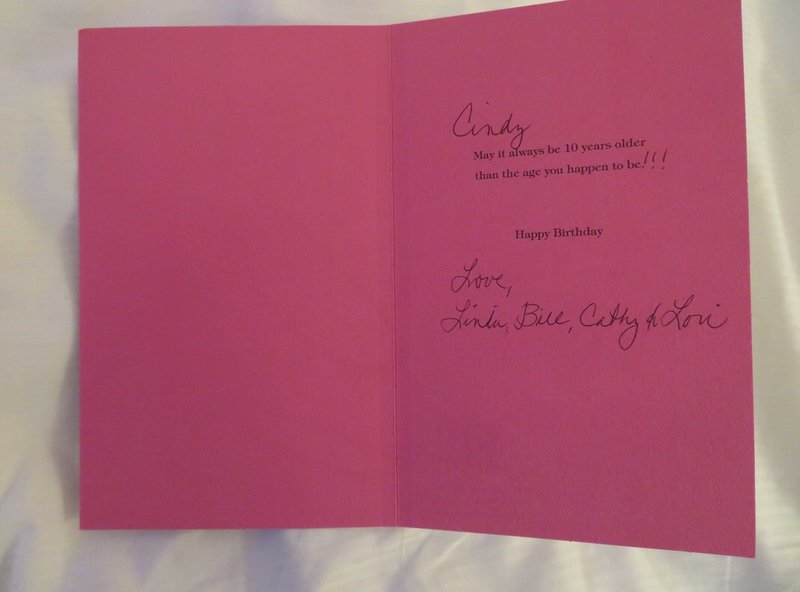 Cindy
May it always be 10 years older
than the age you happen to be.!!!
Happy Birthday
Love,
Linda, Bill, Cathy & Lori